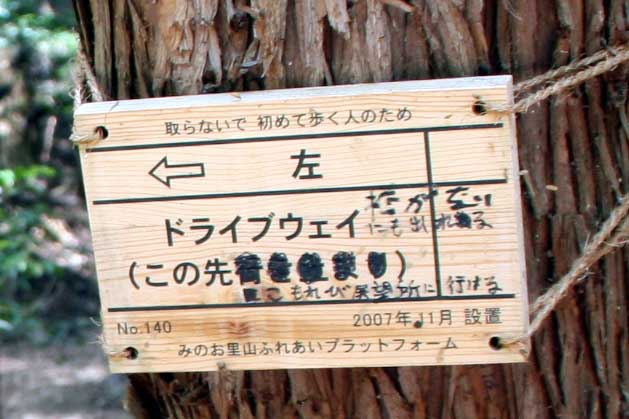 取らないで 初めて歩く人のため
← 左
ドライブウェイ
にも出れる
(この先行き止まり)
こもれび展望所に 行ける
No.140 2007年 11月 設置
みのお里山ふれあいプラットフォーム